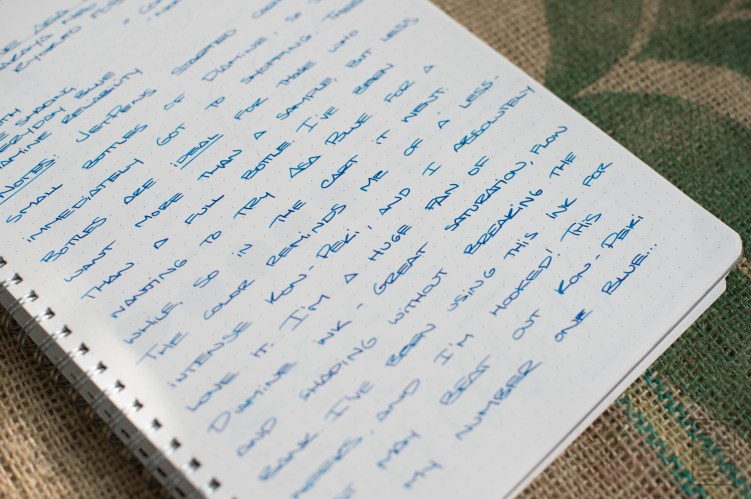 ASA
SHADING
EVERYDAY BLUE
AMINE RELIABILITY
NOTES: JETPENS STARTED
SMALL BOTTLES OF DIAMINE, SO I
IMMEDIATELY GOT TO SHOPPING. THESE
BOTTLES ARE IDEAL FOR THOSE WHO
WANT MORE THAN A SAMPLE, BUT LESS
THAN A FULL BOTTLE. I'VE BEEN
WANTING TO TRY ASA BLUE FOR A
WHILE, SO IN THE CART IT WENT.
THE COLOR REMINDS ME OF A LESS-
INTENSE KON-PEKI, AND I ABSOLUTELY
LOVE IT. I'M A HUGE FAN OF
DIAMINE INK - GREAT SATURATION, FLOW
AND SHADING WITHOUT BREAKING THE
BANK. I'VE BEEN USING THIS INK FOR
WEEKS, AND I'M HOOKED! THIS
MAY BEAT OUT KON-PEKI
MY NUMBER ONE BLUE...